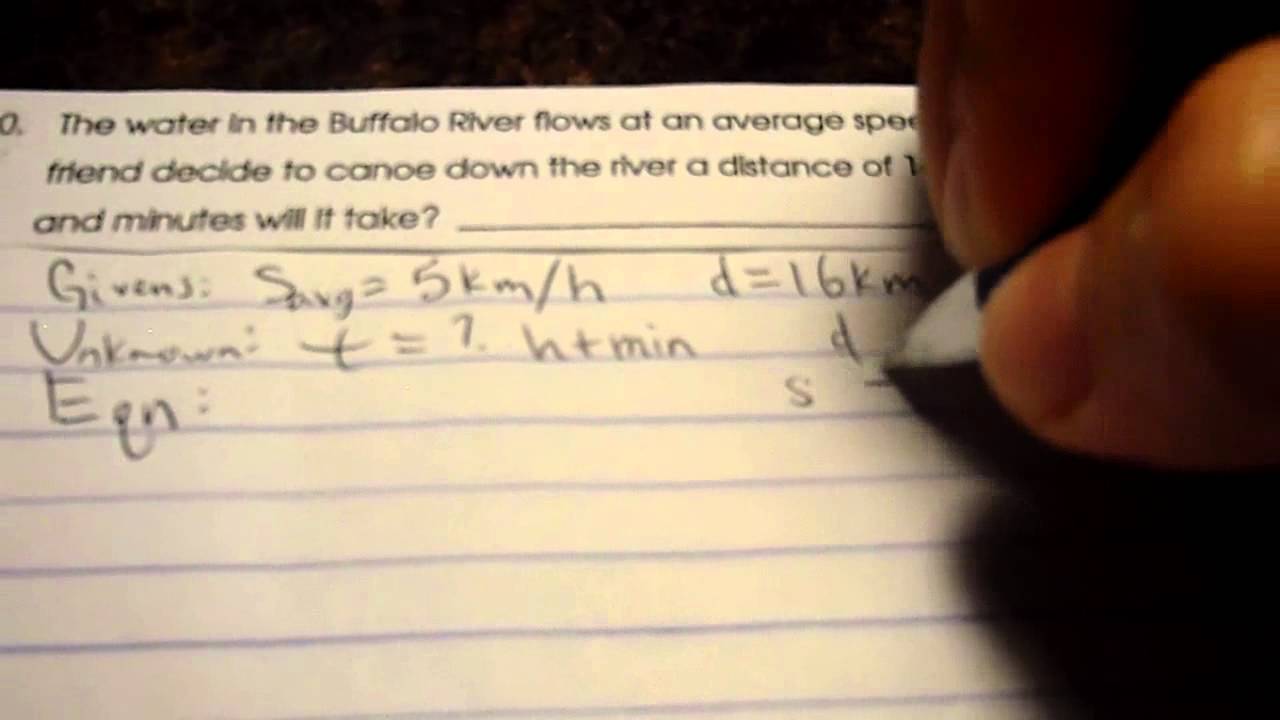 0. The water in the Buffalo River flows at an average spee
friend decide to canoe down the river a distance of 1
and minutes will it take?
Givens: Savg = 5km/h d=16km
Unknown: t = ? h+min d
Eqn: s